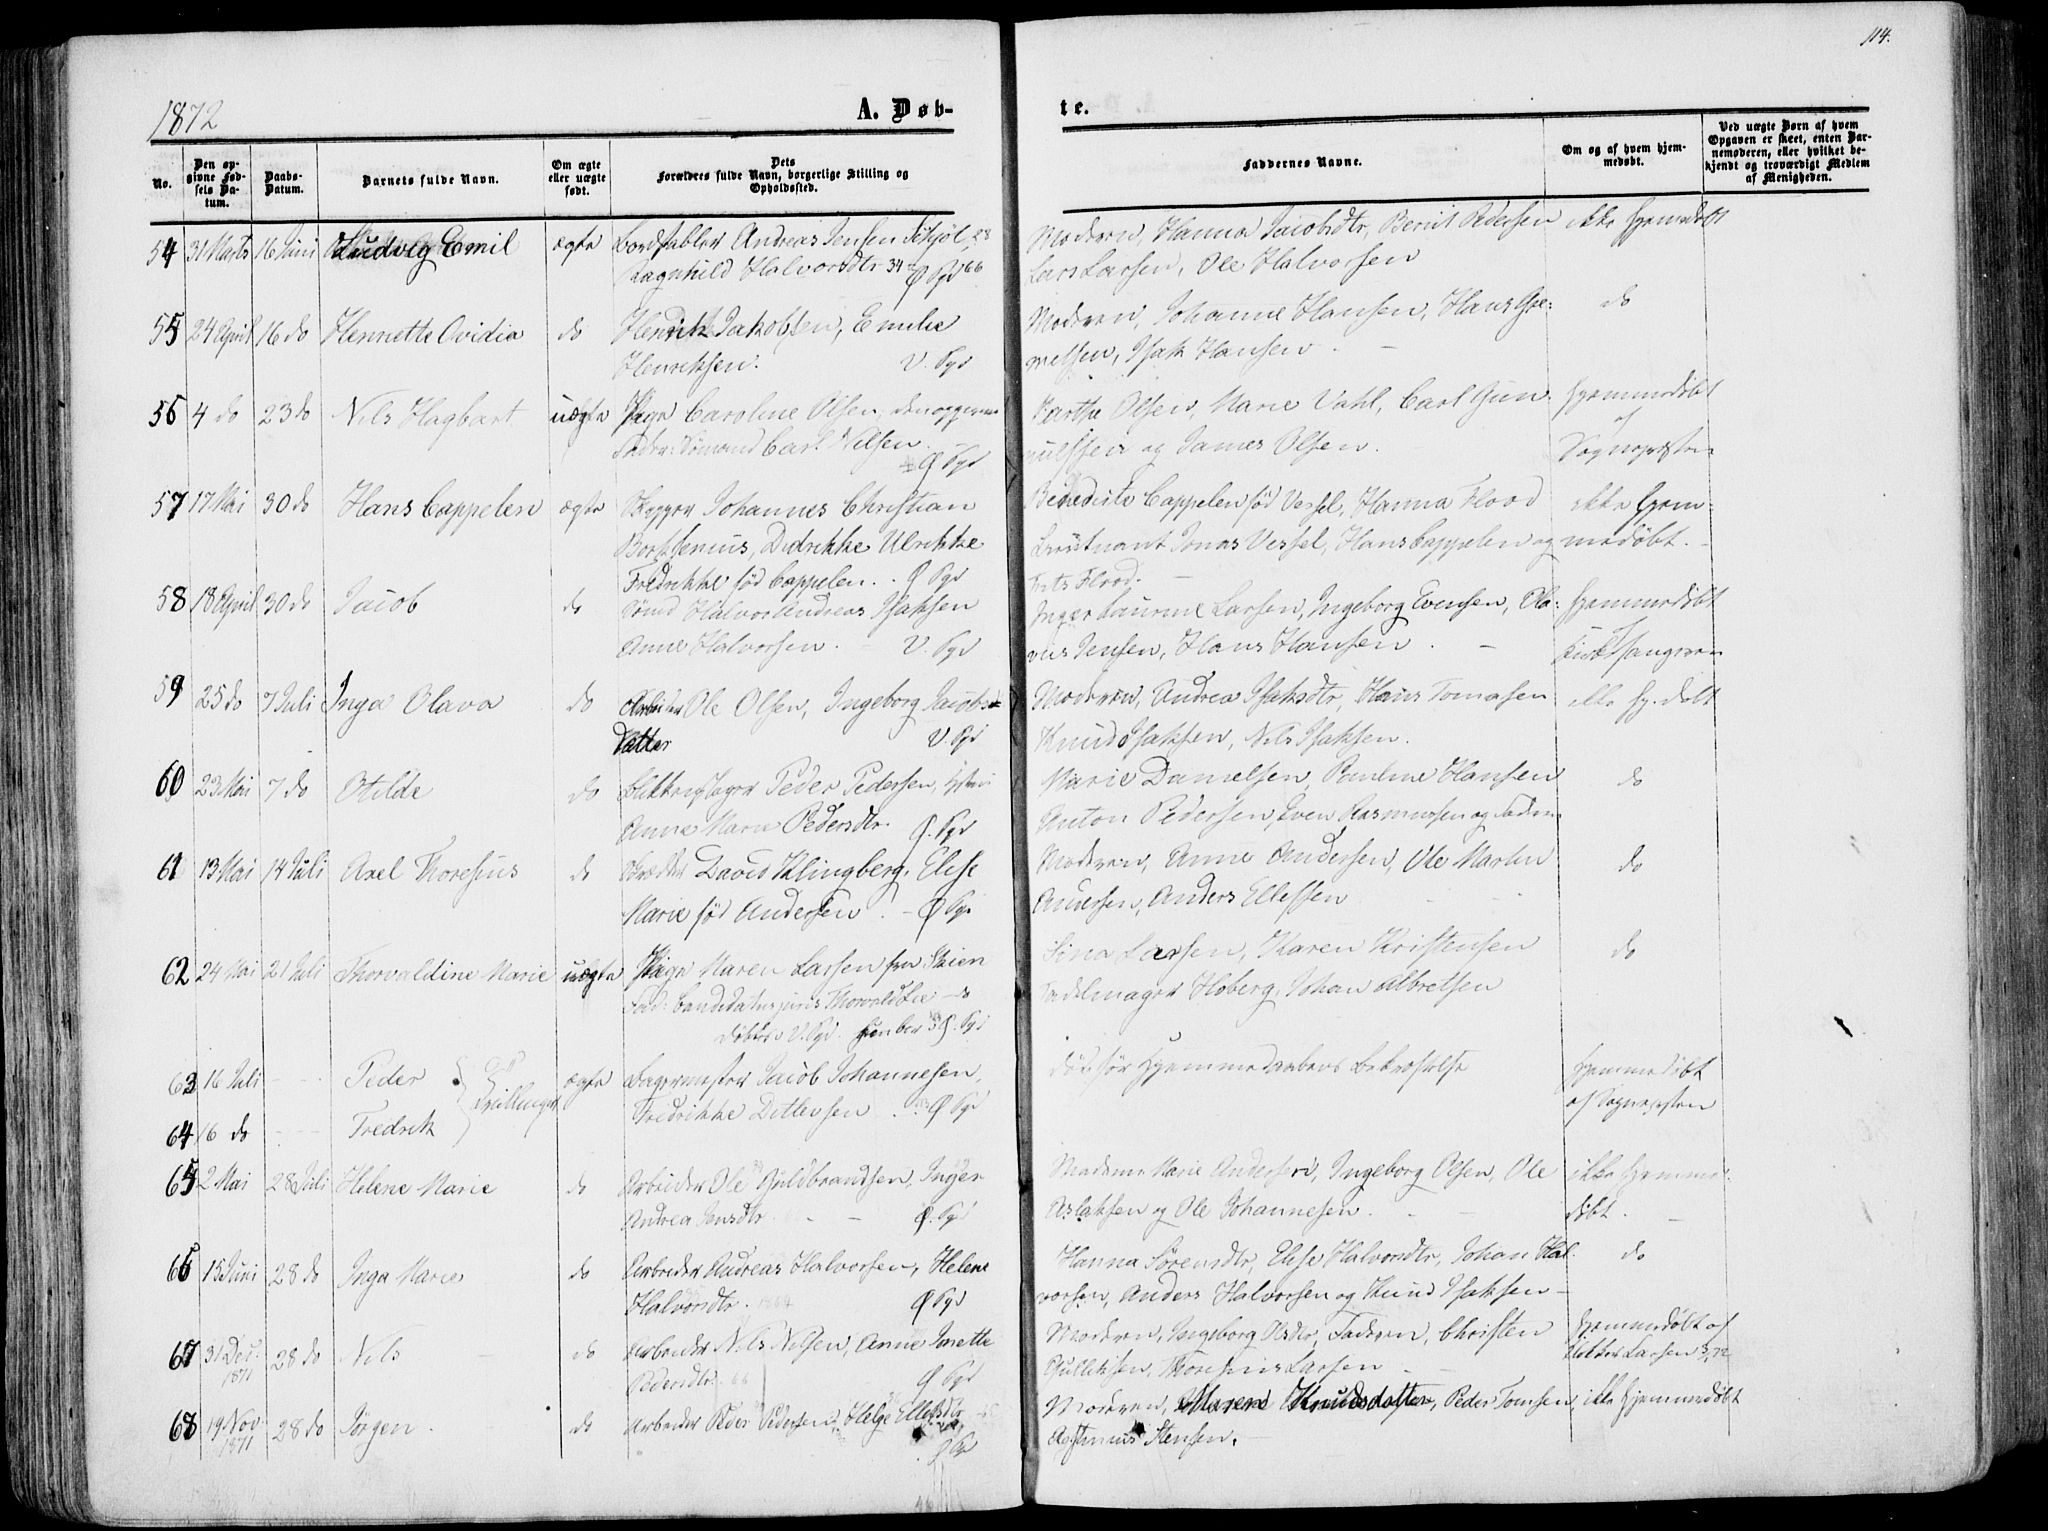 114.
1872
A. Døb-
te.
No.
Den op-
givne Fød-
sels Da-
tum.
Daabs-
Datum.
Barnets fulde Navn.
Om ægte
eller uægte
født.
Dets
Forældres fulde Navn, borgerlige Stilling og
Opholdssted.
Faddernes Navne.
Om og af hvem hjem-
medøbt.
Ved uægte Børn af hvem
Opgaven er skeet, enten Bar-
nemoderen, eller hvilket be-
kjendt og troværdigt Medlem
af Menigheden.
54 31 Marts 16 Juni Ludvig Emil ægte Andreas Jensen
Ragnhild Halvorsdtr 34 Ø Pgd 66
Moderen, Hanna Jacobsdtr, Bernt Pedersen ikke hjemmedøbt
Lars Larsen, Ole Halvorsen
55 24 April 16 do Hennette Ovidia do Hendrik Jakobsen, Emilie
Henriksen. V. Pgd
Moderen, Johanne Hansen, Hans Gre- do
melsen, Isak Hansen
56 4 do 23 do Nils Hagbart uægte Pige Caroline Olsen, den opgivne
Fader: Sømand Carl Nilsen.
Ø Pgd
Marthe Olsen, Marie Vahl, Carl Gun hjemmedøbt
nulfsen og James Olsen. af
Sognepresten
57 17 Mai 30 do Hans Cappelen ægte Johannes Christian
Borchsenius, Didrikke Ulrikke
Fredrikke fød Cappelen. Ø Pgd
Benedicte Cappelen fød Vessel, Hanna Flood ikke hjem-
Lieutnant Jonas Vessel, Hans Cappelen og medøbt.
Frits Flood.
58 18 April 30 do Jacob do Sømd Halvor Andreas Isaksen
Anne Halvorsen. V. Pgd
Inger Laurine Larsen, Ingeborg Evensen, Ola- hjemmedøbt
vus Jensen, Hans Hansen. Kirkesangeren
59 25 do 7 Juli Inga Olava do Arbeider Ole Olsen, Ingeborg Jacobs-
datter V. Pgd
Moderen, Andrea Isaksdtr, Hans Tomasen ikke hj. døbt
Knud Isaksen, Nils Isaksen.
60 23 Mai 7 do Otilde do Blikkenslager Peder Pedersen,
Anne Marie Pedersdtr. Ø. Pgd
Marie Danielsen, Pauline Hansen do
Anton Pedersen, Even Rasmussen og Faderen
61 13 Mai 14 Juli Axel Thoresius do Skrædder David Klingberg, Elise
Marie fød Andersen. - Ø Pgd
Moderen, Anne Andersen, Ole Martin do
Andersen, Anders Ellefsen
62 24 Mai 21 Juli Thorvaldine Marie uægte Pige Maren Larsen fra Skien
Fad: Candidatus juris Thorvald Lie - do
døbt i V. Pgd.
Sina Larsen, Karen Kristensen do
Sadelmager Hoberg, Johan Albretsen
63 16 Juli Peder Tvillinger ægte Lagermester Jacob Johannesen,
Fredrikke Ditlevsen. Ø Pgd
Død før Hjemmedaabens Bekræftelse hjemmedøbt
af Sognepresten
64 16 do Fredrik
65 2 Mai 28 Juli Helene Marie do Arbeider Ole Guldbrandsen, Inger
Andrea Jensdtr. Ø. Pgd
Marie Andersen, Ingeborg Olsen, Ole ikke hjemme-
Aslaksen og Ole Johannesen. døbt.
66 15 Juni 28 do Inga Marie do Arbeider Andreas Halvorsen, Helene
Halvorsdtr. 1864 Ø Pgd
Hanna Sørensdtr, Elise Halvorsdtr, Johan Hal- do
vorsen, Anders Halvorsen og Knud Isaksen
67 31 Dec. 1871 28 do Nils do Arbeider Nils Nilsen, Anne
Pedersdtr. 66 Ø Pgd
Moderen, Ingeborg Olsdtr, Faderen, Christen hjemmedøbt af
Gulliksen, Thoresius Larsen Klokker Larsen
68 19 Nov 1871 28 do Jørgen. do Arbeider Peder Pedersen, Helge Ellefsdtr
Ø Pgd
Moderen, Maren Knudsdatter, Peder Tomsen, ikke hjemmedøbt
Jensen.